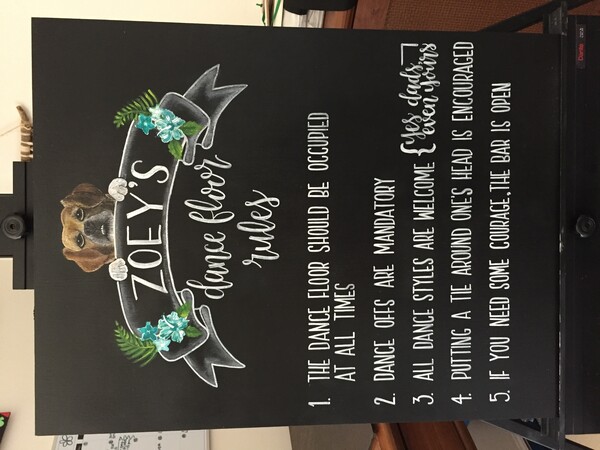 ZOEY'S
dance floor
rules
1. THE DANCE FLOOR SHOULD BE OCCUPIED
AT ALL TIMES
2. DANCE OFFS ARE MANDATORY
3. ALL DANCE STYLES ARE WELCOME {Yes dads,
even yours}
4. PUTTING A TIE AROUND ONE'S HEAD IS ENCOURAGED
5. IF YOU NEED SOME COURAGE, THE BAR IS OPEN